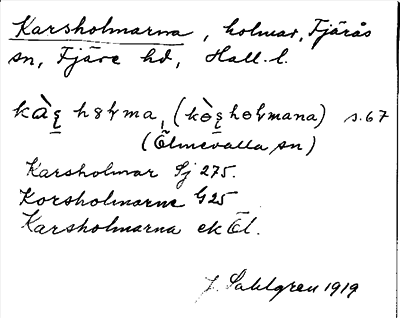 Karsholmarna, holmar, Fjärås
sn, Fjäre hd, Hall. l.
kàʂ hɵɫma, (kòʂhɵɫmana) s. 67
(Ölmevalla sn)
Karsholmar Sj 275.
Korsholmarne G25
Karsholmarna ek Öl.
J. Sahlgren 1919